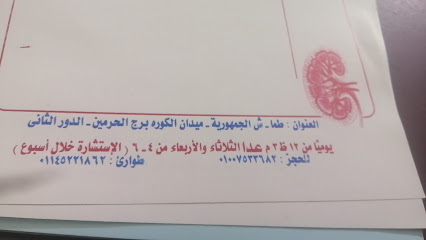 العنوان : طما - ش الجمهورية - ميدان الكوره برج الحرمين - الدور الثانى
يوميًا من ١٢ ظ ٣ م عدا الثلاثاء والأربعاء من ٤ - ٦ ( الإستشارة خلال أسبوع )
للحجز : ٠١٠٠٧٥٣٣٦٨٢ طوارئ : ٠١١٤٥٢٢١٨٦٢